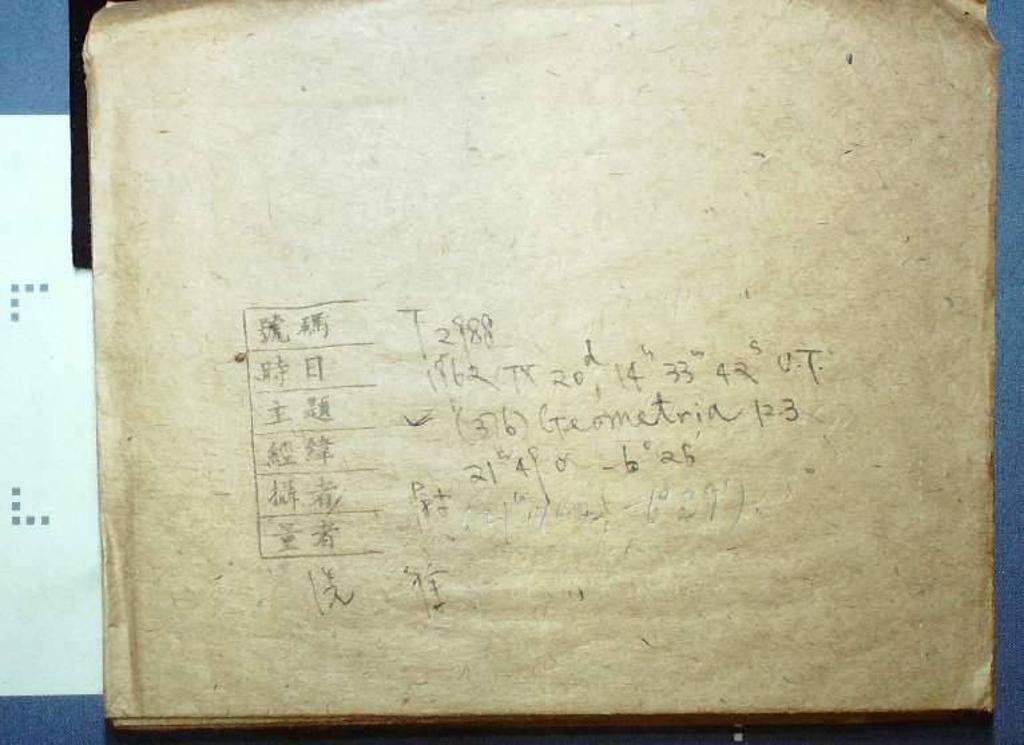 號碼 T 2988
時日 1962 IX 20ᵈ, 14ʰ 33ᵐ 42ˢ U.T.
主題 ✓ (376) Geometria 12.3
經緯 21ʰ 49 -6° 25'
攝者
量者
洗